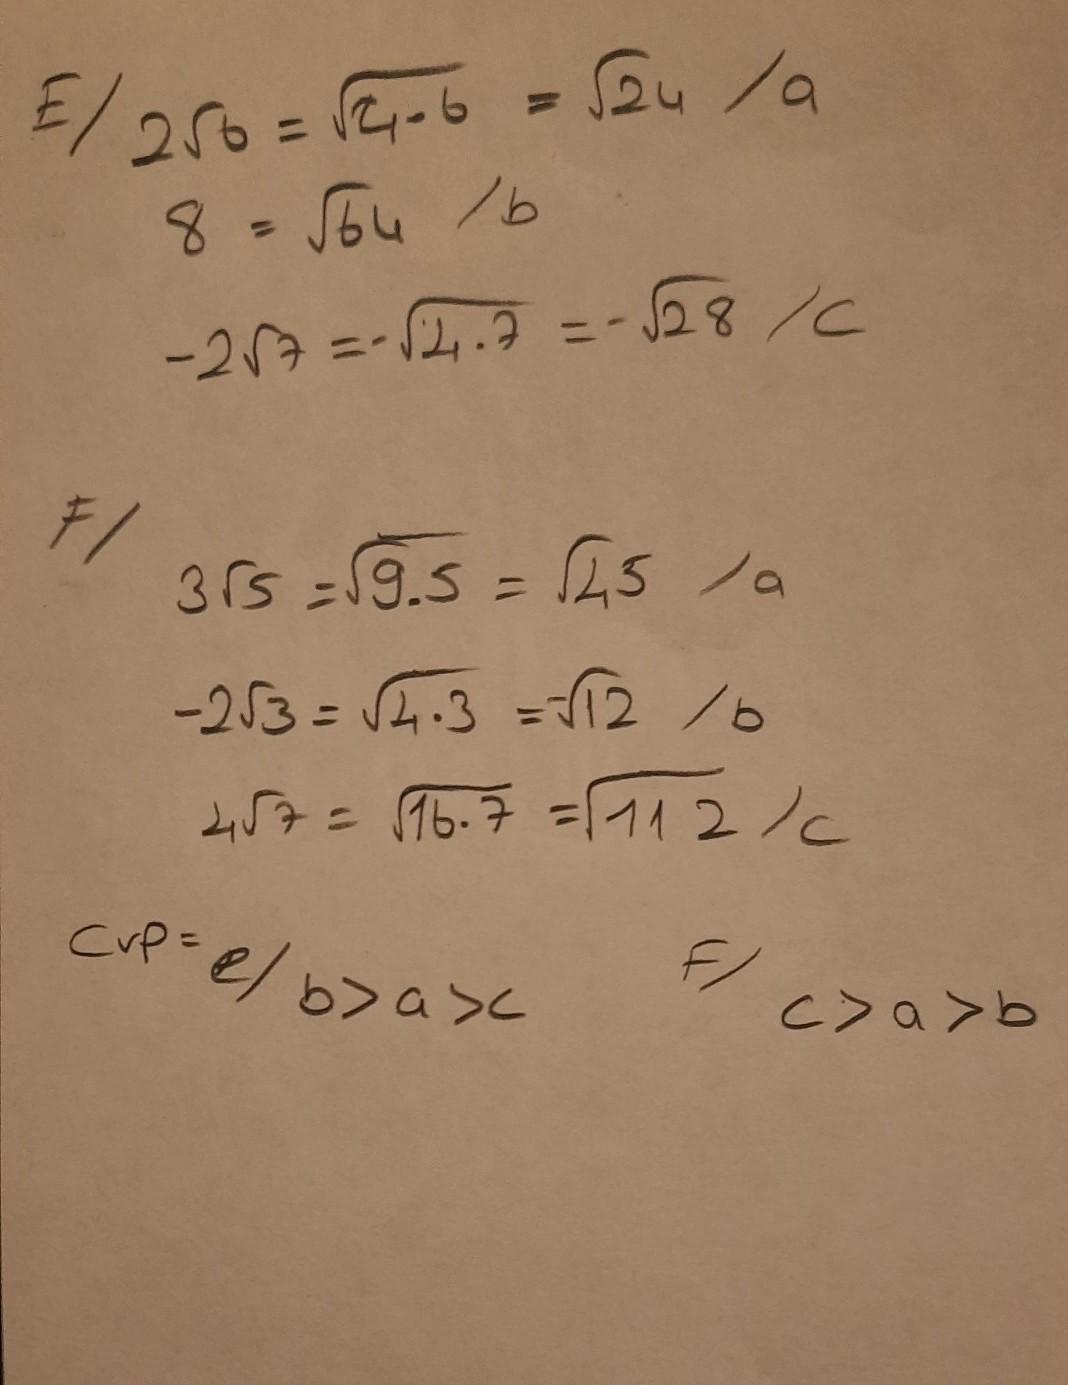 E/ 2√6 = √4.6 = √24 /a
8 = √64 /b
-2√7 = -√4.7 = -√28 /c
F/
3√5 = √9.5 = √45 /a
-2√3 = √4.3 = -√12 /b
4√7 = √16.7 = √112 /c
Cvp = e/ b>a>c F/ c>a>b